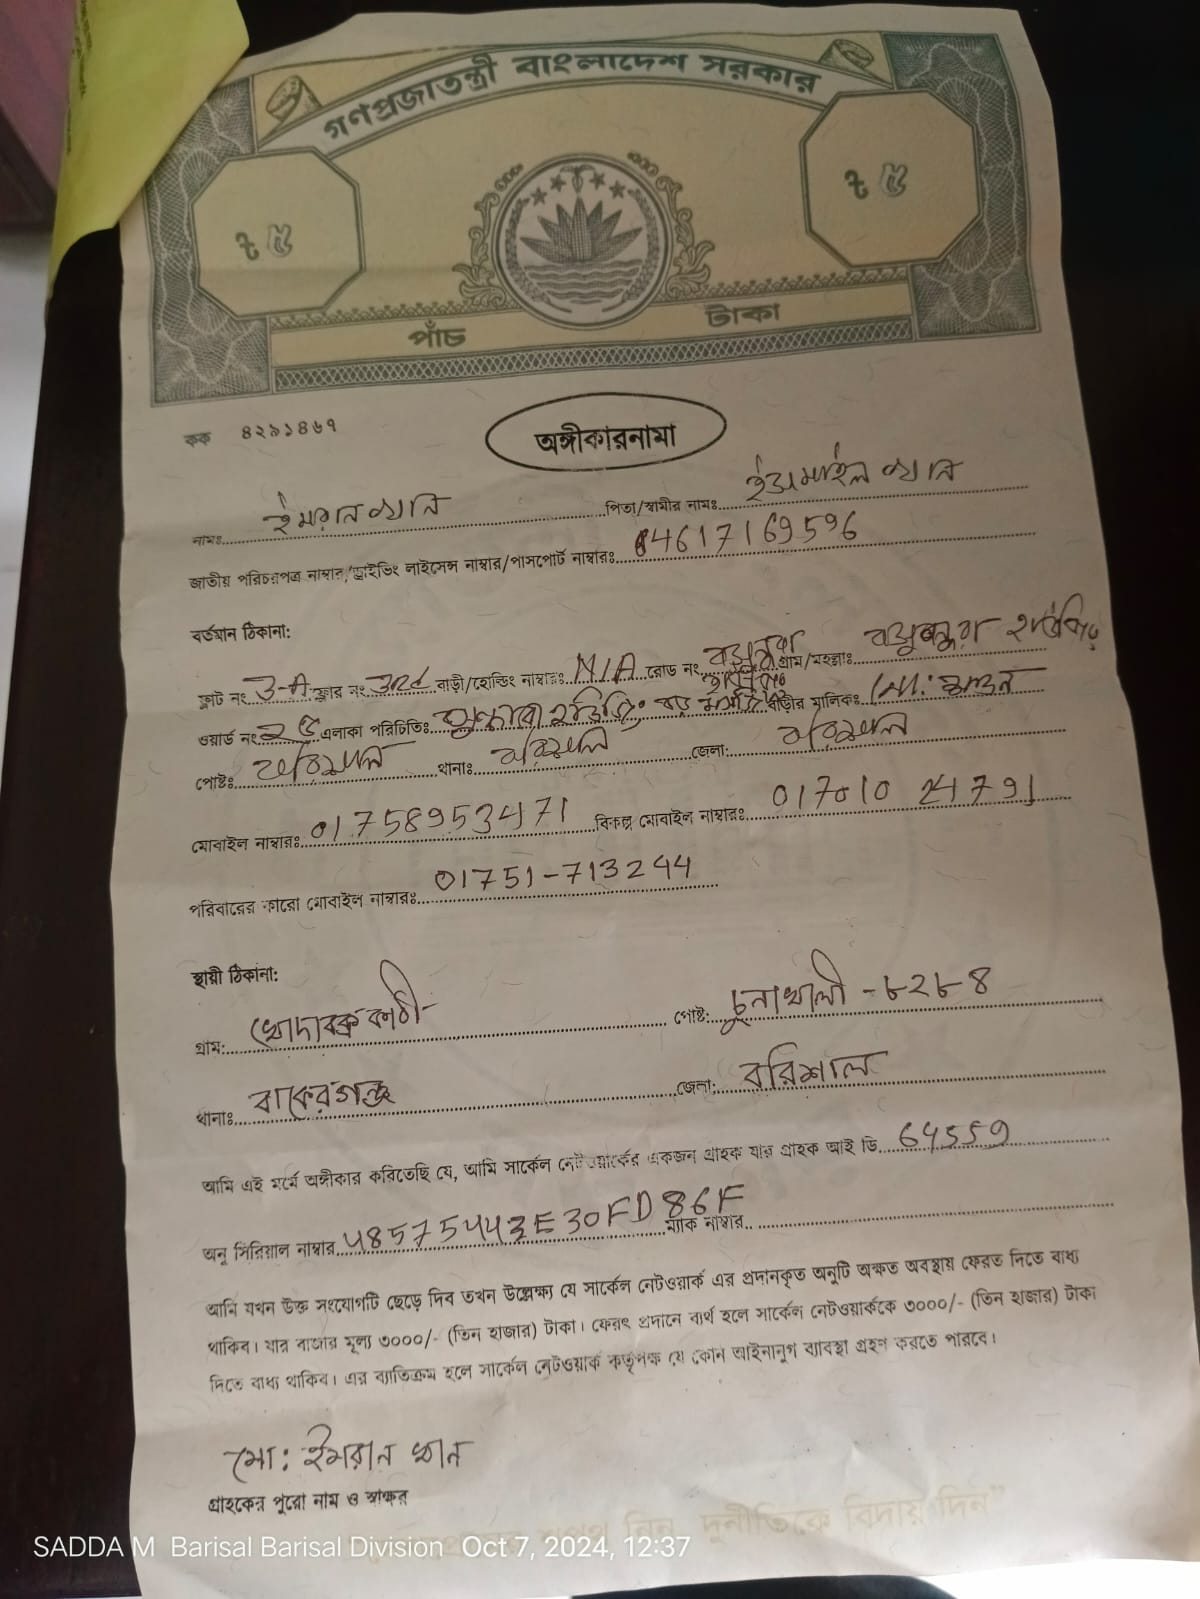 গণপ্রজাতন্ত্রী বাংলাদেশ সরকার
৳ ৫
৳ ৫
পাঁচ টাকা
কক ৪২৯১৪৬৭
অঙ্গীকারনামা
নামঃ ইমরান খান পিতা/স্বামীর নামঃ ইসমাইল খান
জাতীয় পরিচয়পত্র নাম্বার/ড্রাইভিং লাইসেন্স নাম্বার/পাসপোর্ট নাম্বারঃ 4617169596
বর্তমান ঠিকানা:
ফ্লাট নং 3-A ফ্লোর নং 3rd বাড়ী/হোল্ডিং নাম্বারঃ N/A রোড নং বসুন্ধরা হাউজিং গ্রাম/মহল্লাঃ বসুন্ধরা হাউজিং
ওয়ার্ড নং ২৫ এলাকা পরিচিতিঃ হাউজিং বাড়ীর মালিকঃ মো:
পোষ্টঃ বরিশাল থানাঃ বরিশাল জেলা: বরিশাল
মোবাইল নাম্বারঃ 01758953471 বিকল্প মোবাইল নাম্বারঃ 017010 24791
পরিবারের কারো মোবাইল নাম্বারঃ 01751-713244
স্থায়ী ঠিকানা:
গ্রাম: খোদাবক্সকাঠী পোষ্ট: চুনাখালী - ৮২৮৪
থানাঃ বাকেরগঞ্জ জেলা: বরিশাল
আমি এই মর্মে অঙ্গীকার করিতেছি যে, আমি সার্কেল নেটওয়ার্কের একজন গ্রাহক যার গ্রাহক আই ডি 64559
অনু সিরিয়াল নাম্বার 48575443E30FD86F ম্যাক নাম্বার
আমি যখন উক্ত সংযোগটি ছেড়ে দিব তখন উল্লেক্ষ্য যে সার্কেল নেটওয়ার্ক এর প্রদানকৃত অনুটি অক্ষত অবস্থায় ফেরত দিতে বাধ্য
থাকিব। যার বাজার মূল্য ৩০০০/- (তিন হাজার) টাকা। ফেরৎ প্রদানে ব্যর্থ হলে সার্কেল নেটওয়ার্ককে ৩০০০/- (তিন হাজার) টাকা
দিতে বাধ্য থাকিব। এর ব্যাতিক্রম হলে সার্কেল নেটওয়ার্ক কতৃপক্ষ যে কোন আইনানুগ ব্যাবস্থা গ্রহণ করতে পারবে।
মো: ইমরান খান
গ্রাহকের পুরো নাম ও স্বাক্ষর
দুর্নীতিকে বিদায় দিন”
SADDA M Barisal Barisal Division Oct 7, 2024, 12:37